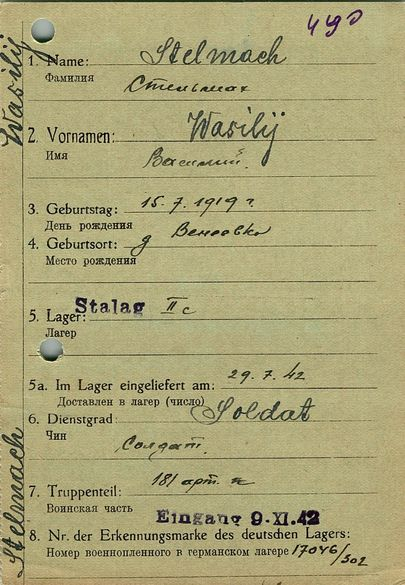 490
1. Name: Stelmach
Фамилия Стельмах
2. Vornamen: Wasilij
Имя Василий.
3. Geburtstag: 15. 7. 1919 г
День рождения
4. Geburtsort: д
Место рождения
Stalag II c
5. Lager:
Лагерь
5a. Im Lager eingeliefert am: 29. 7. 42
Доставлен в лагерь (число)
6. Dienstgrad: Soldat
Чин Солдат.
7. Truppenteil: 181 арт. п
Воинская часть
Eingang 9. XI. 42
8. Nr. der Erkennungsmarke des deutschen Lagers:
Номер военнопленного в германском лагере 17046/302
Wasilij
Stelmach